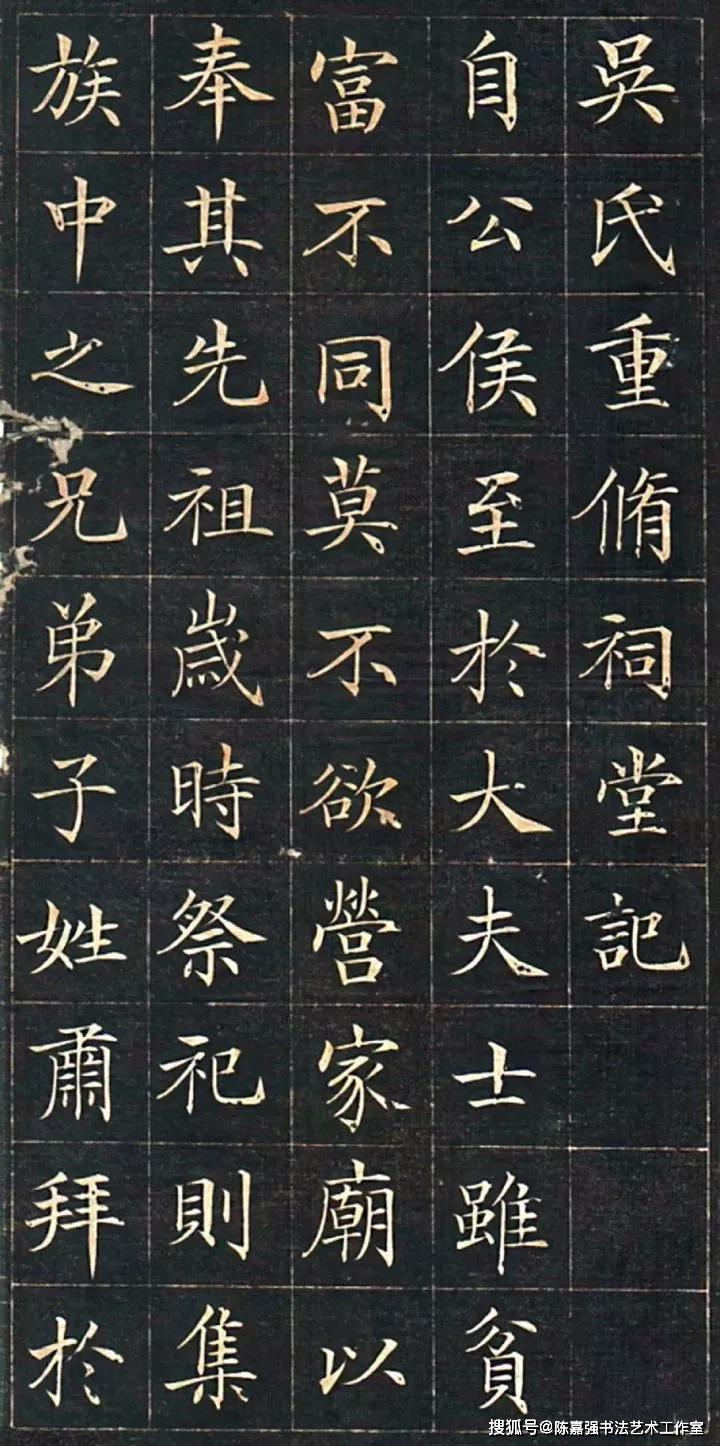 吳氏重脩祠堂記
自公侯至於大夫士雖貧
富不同莫不欲營家廟以
奉其先祖歲時祭祀則集
族中之兄弟子姓肅拜於
搜狐号@陈嘉强书法艺术工作室